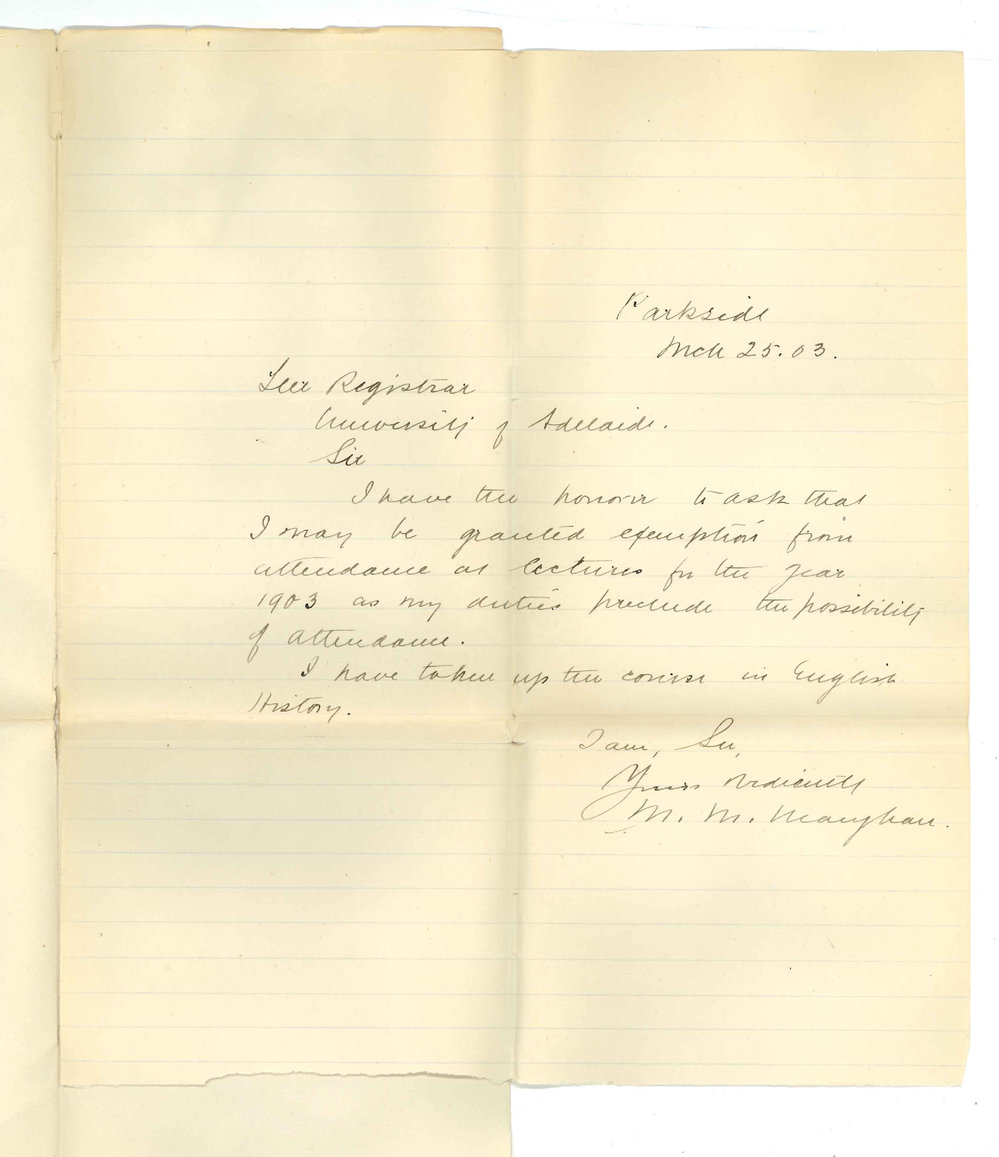 Parkside
Mch 25.03.
The Registrar
University of Adelaide.
Sir
I have the honour to ask that
I may be granted exemption from
attendance at lectures for the year
1903 as my duties preclude the possibility
of attendance.
I have taken up the course in English
History.
I am, Sir,
Yours obediently
M. M. Maughan.